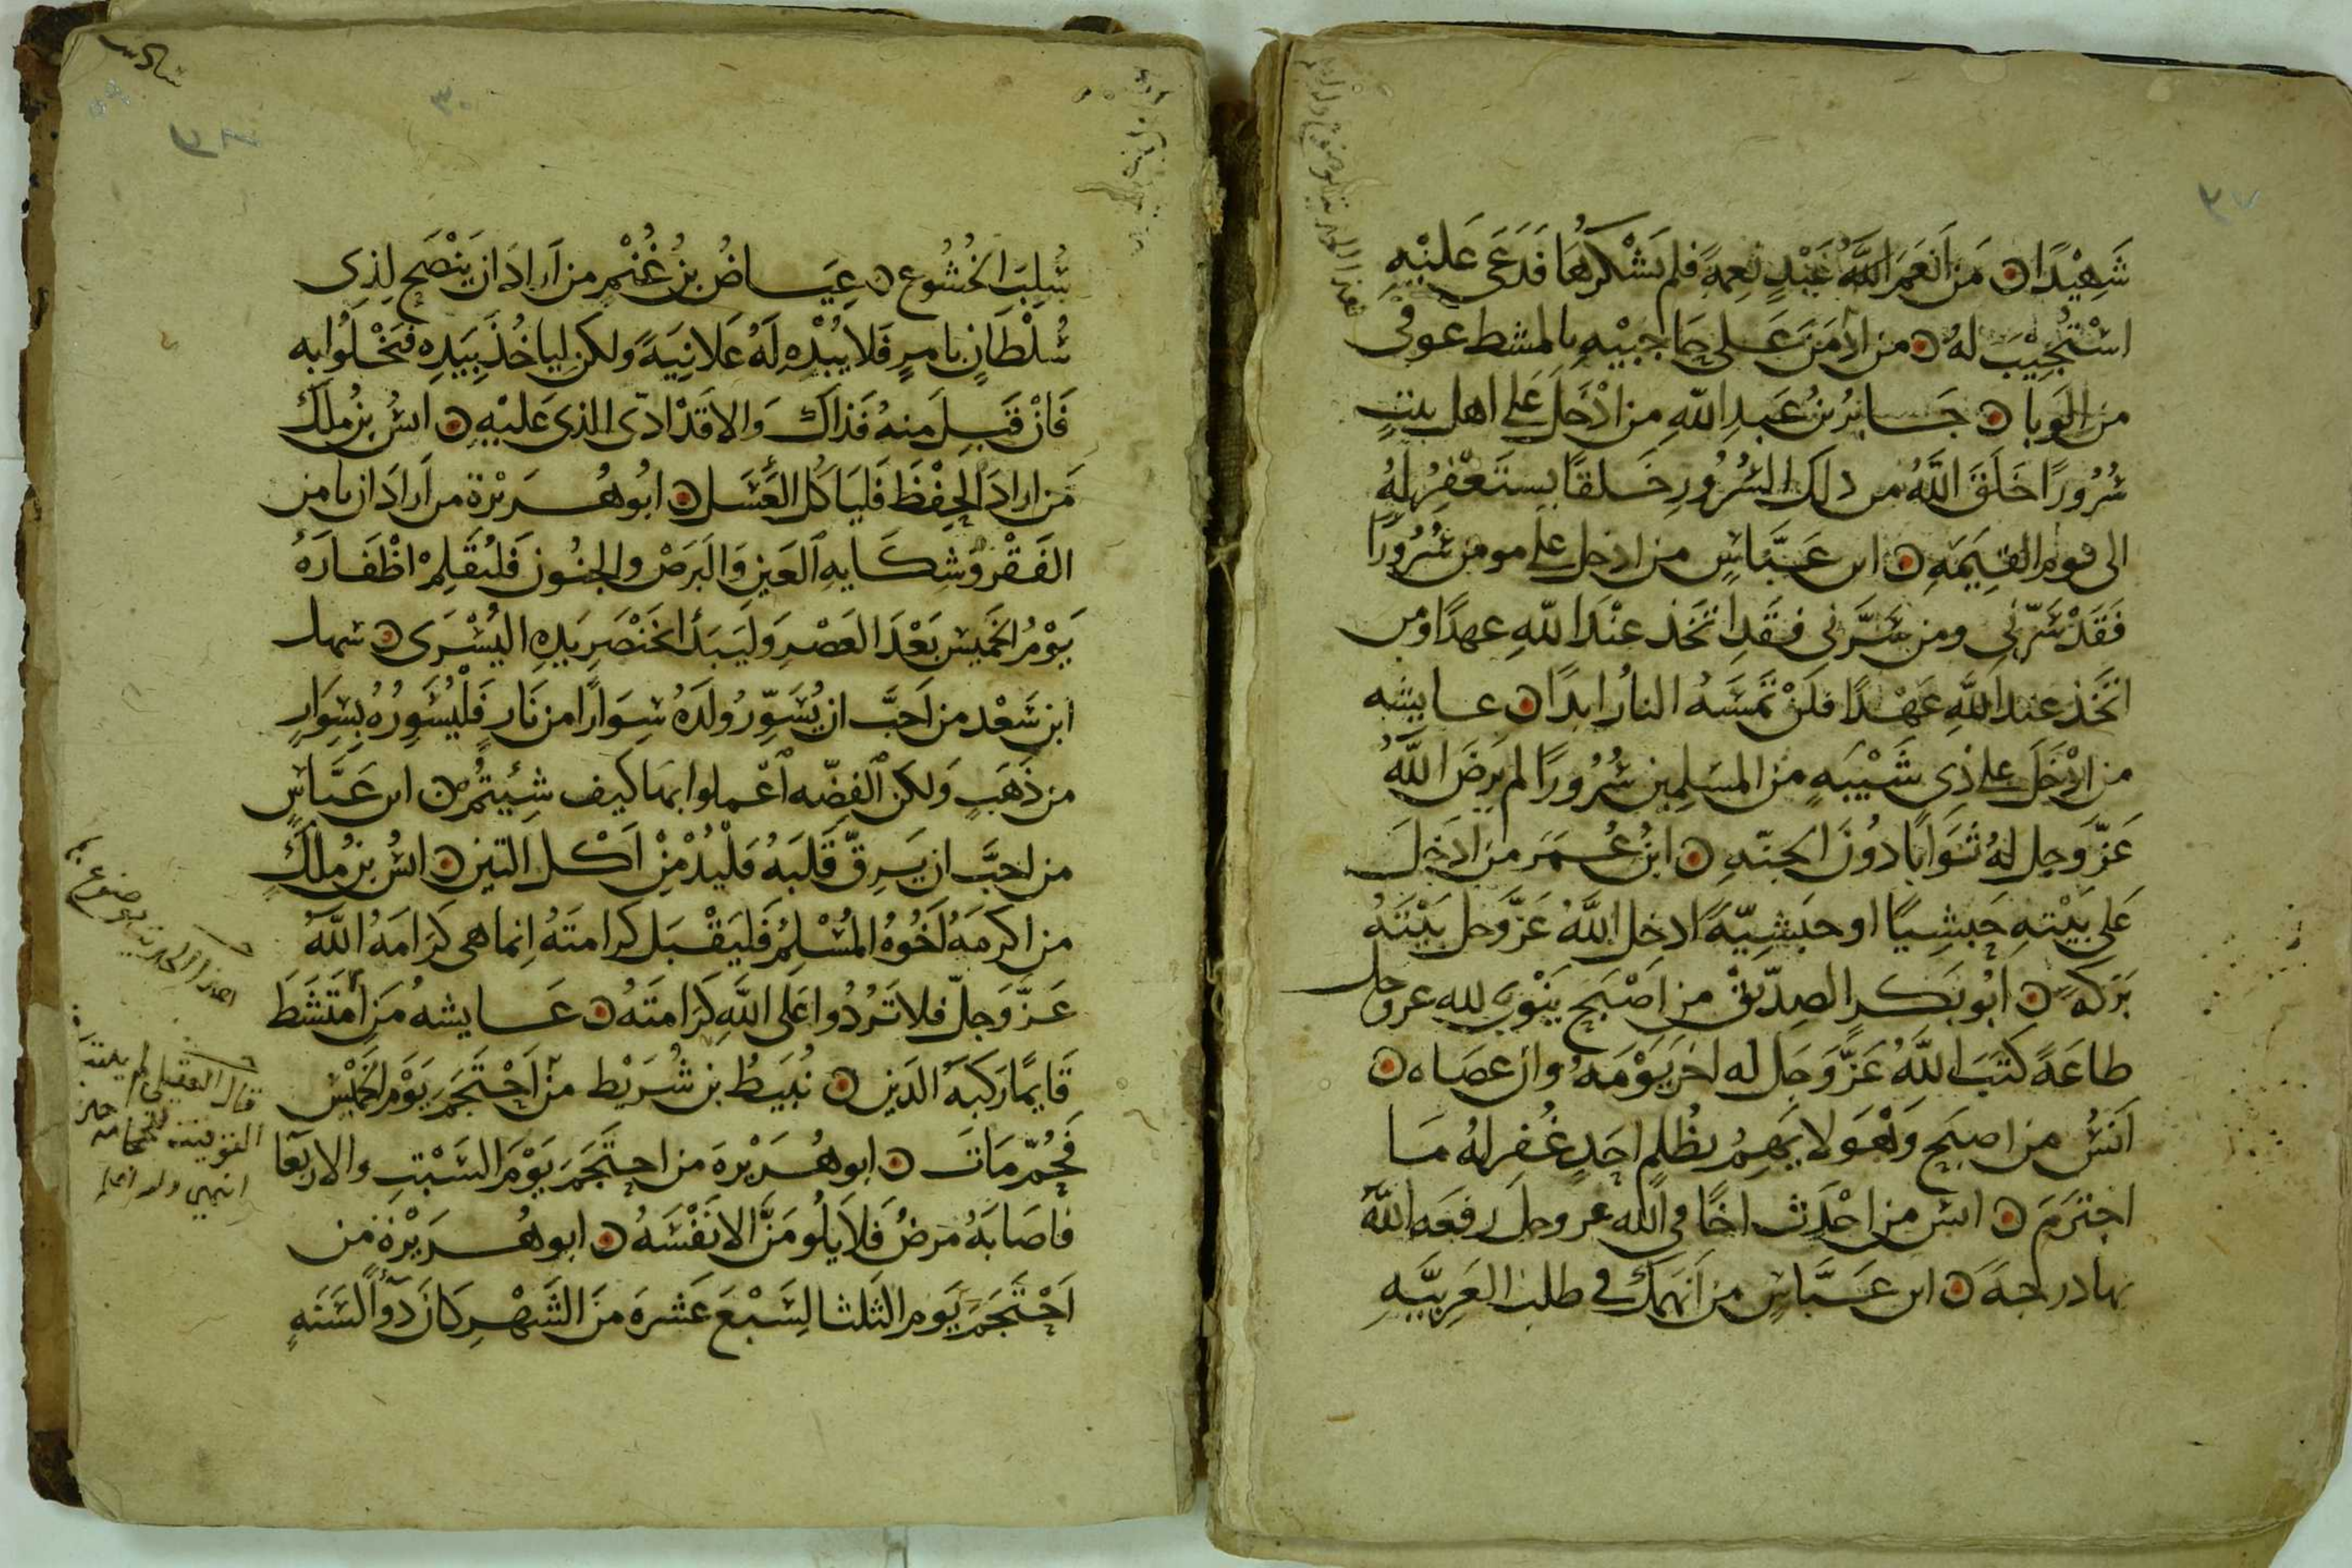 شَهِيْدًا ۝ مَنَ اَنْعَمَ اللَّهُ عَبْدٍ نِعمةً فلم يَشْكُرهَا فَدَعَى عَلَيْهِ
اسْتُجِيْبَ لهُ ۝ من ادمَنَ عَلى حَاجِبَيْهِ بالمشط عوفى
من الوَبا ۝ جَابرُ بنُ عَبدِ اللّهِ من ادْخَلَ على اهل بيتٍ
سُرُورًا خَلَقَ اللَّهُ من ذلك السُّرُورِ خَلقًا يستَغفِرُ لهُ
الى يوم القِيمَةِ ۝ ابن عَبَّاسٍ من ادخل على مومن سُرُورًا
فَقَدْ سَرّنِي ومن سَرَّنِي فقَدِ اتَّخَذ عنْدَ اللّهِ عهدًا ومن
اتَّخَذ عند اللَّهِ عَهْدًا فلَنْ تمَسَّهُ النارُ ابدًا ۝ عايشه
من ادْخَلَ على ذِى شَيْبَهٍ من المسَلِمِين سُرُورًا لم يَرضَ اللَّهُ
عَزّ وَجل لهُ ثَوَابًا دُونَ الجنّهِ ۝ ابنُ عُمَر من ادَخلَ
عَلى بَيْتهِ حَبشِيًا او حبَشيّهً ادخل اللَّهُ عَزَّ وجل بَيْتَهُ
بَرَكه ۝ ابُو بَكر الصِدّيقْ من اصْبَحَ ينَوْي لله عز وجل
طاعَةً كَتَبَ اللَّهُ عَزَّ وَجَل له اجرَ يَوْمَهُ وان عصَاه ۝
اَنَسُ من اصبَح وَهْوَ لا يَهمُ بظُلمِ احَدٍ غُفِر لهُ مَا
اجتَرَمَ ۝ انس من احْدَث اخًا في الله عز وجل رفعَه اللَّه
بها درجةَ ۝ ابن عَبَّاسٍ من اَنهمَك في طلب العَرِبيَّهِ
سُلِبَ الخُشُوع ۝ عِيَاضُ بنُ غُنْمٍ من اَرادَ ان يَنْصَح لِذِى
سُلْطَانٍ بامرٍ فَلا يُبْدْهِ لَهُ عَلانِيَةً ولكن ليا خُذَ بِيَدِهِ فَيَخْلُوا به
فَانْ قَبِلَ منهُ فَذاكَ وَالا قَدْ ادّى الذى عَلَيْهِ ۝ انسُ بنُ مٰلكٍ
مَن ارادَ الحِفْظَ فَليَاكُل العَسَل ۝ ابُو هُرَيْرة من اَرادَ ان يامن
الفَقْر وَشِكَايهِ العَينِ وَالبَرَصْ والجنُون فَليُقَلِمْ اظْفَارَهُ
يَوْمُ الخَمِيسِ بَعْدَ العَصْرِ وَليَبَدأ الخَنْصَرِ يَدِهِ اليُسْرَى ۝ سهل
ابن سَعْد من اَحَبَّ ان يُسَوِّرُ ولَدَهُ سِوَارًا من نَارٍ فَلْيُسَوِرُهُ بِسِوَارٍ
من ذَهَبٍ وَلكن الفِضّه اَعْملوا بهَا كيف شِئِيتُمْ ۝ ابن عَبَّاسٍ
من احبَّ ان يَرِقّ قَلبَهُ فَلْيُدْمِنْ اَكْل التين ۝ انسُ بنُ مٰلكٍ
من اكرمَهُ اَخُوهُ المُسْلِمُ فَليَقْبَل كَرامتَهُ اِنما هى كَرَامَهُ اللَّهُ
عَزَّ وَجلّ فلا تَرُدُوا عَلَى اللَّهِ كَرَامتَهُ ۝ عَايشهُ مَن اَمتَشَطَ
قَايمًا رَكبَهُ الدَين ۝ نُبَيطُ بن شُرَيْط منْ اَحْتَجَمَ يَوْم الخَمْيْس
فَحُمّ مَاتَ ۝ ابو هُرَيْرهَ من احتَجَمَ يَوْمَ السَبْتِ والاربَعَا
فاصَابَهُ مَرضُ فَلا يَلُومَنَّ الا نَفْسَهُ ۝ ابو هُرَيْرَة من
اَحْتَجَمَ يَوم الثلثا لِسَبْعَ عَشره مَنَ الشَهْرِ كَانَ دَوآ السَنَهِ
هذا الحديث موضوع
قال العقيلى لم يثبت